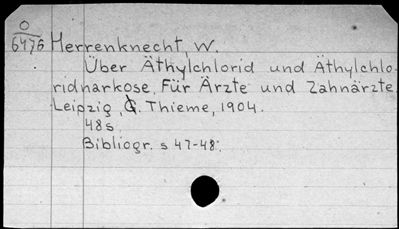 O
6476 Herrenknecht, W.
Über Äthylchlorid und Äthylchlo-
ridnarkose. Für Ärzte und Zahnärzte.
Leipzig, G. Thieme, 1904.
48s.
Bibliogr. s 47-48.